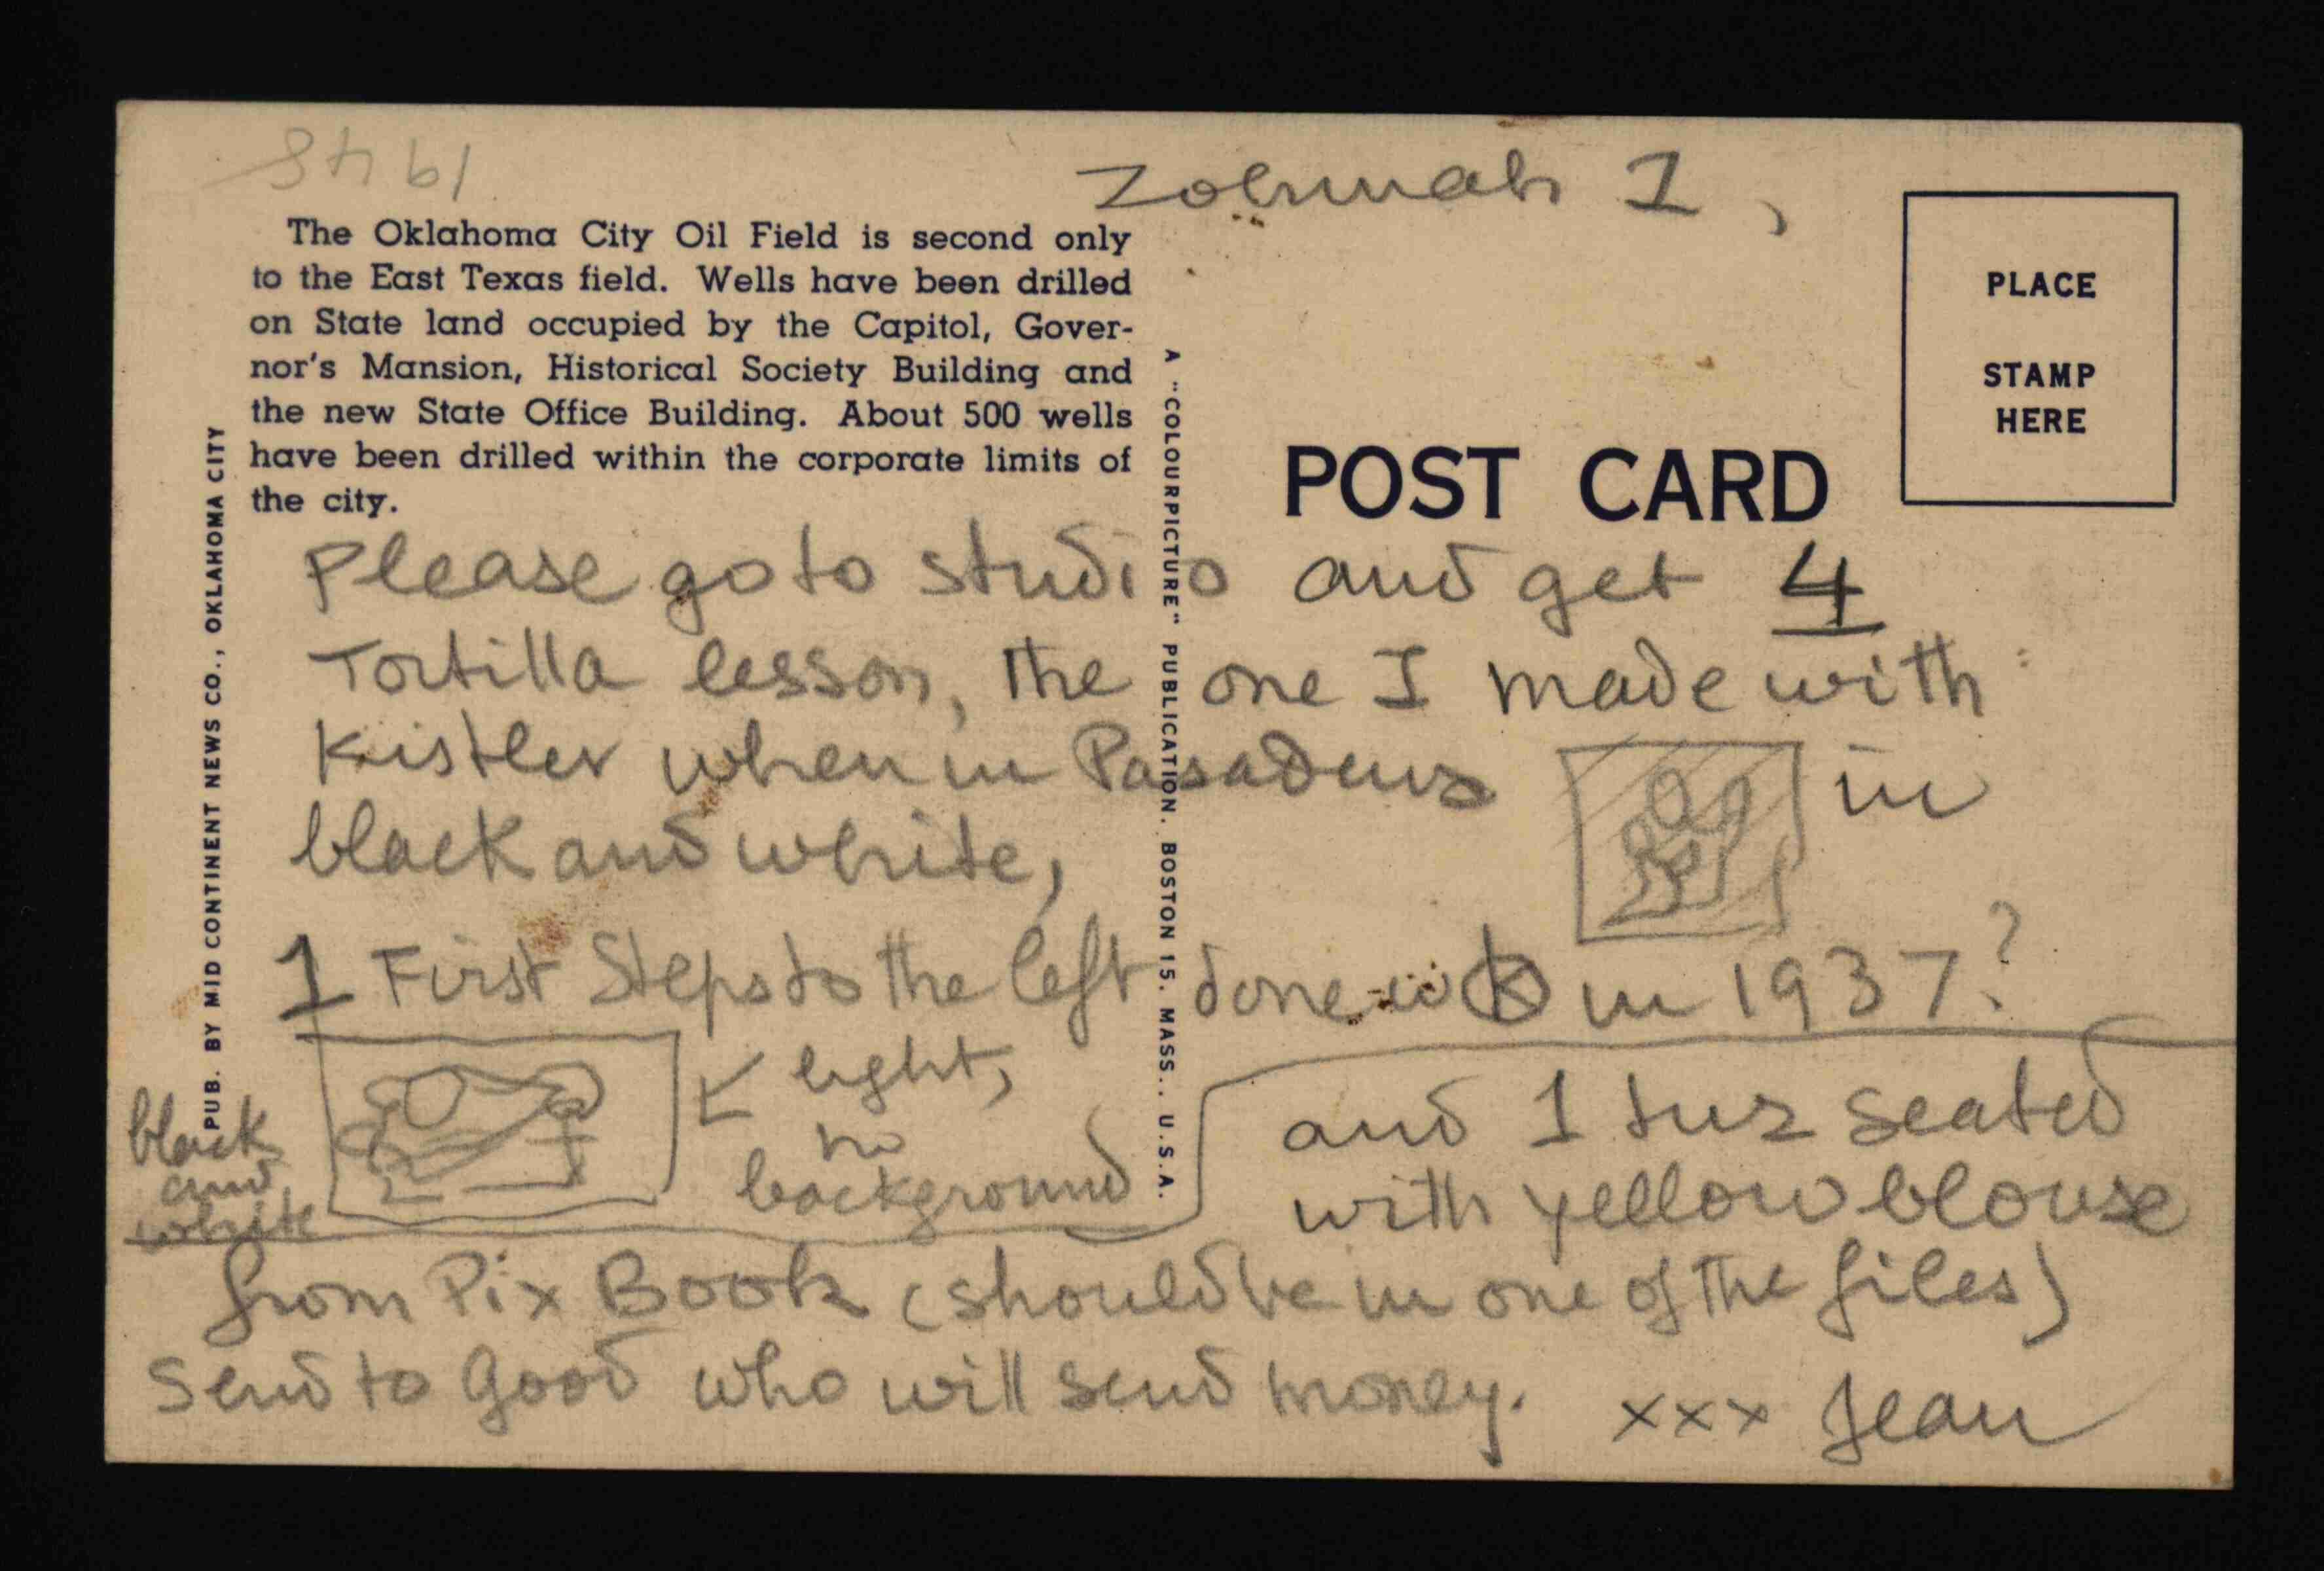 1948
Zohmah 1,
The Oklahoma City Oil Field is second only
to the East Texas field. Wells have been drilled
on State land occupied by the Capitol, Gover-
nor's Mansion, Historical Society Building and
the new State Office Building. About 500 wells
have been drilled within the corporate limits of
the city.
PUB. BY MID CONTINENT NEWS CO., OKLAHOMA CITY
A "COLOURPICTURE" PUBLICATION. BOSTON 15. MASS.. U.S.A.
PLACE
STAMP
HERE
POST CARD
Please go to studio and get 4
Tortilla lesson, the one I made with
Kistler when in Pasadena in
black and white,
1 First Steps to the left done w K in 1937?
light,
no
background
black
and
white
and 1 Luz seated
with yellow blouse
from Pix Book (should be in one of the files)
Send to Good who will send money. xxx Jean